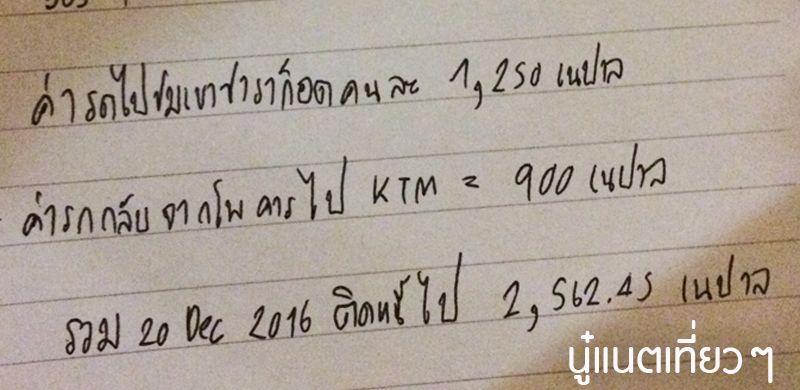 ค่ารถไปชมเขาซารางก็อตคนละ 1,250 เนปาล
ค่ารถกลับจากโพคารไป KTM = 900 เนปาล
รวม 20 Dec 2016 ติดหนี้ไป 2,562.45 เนปาล
นู๋แนตเที่ยวๆ